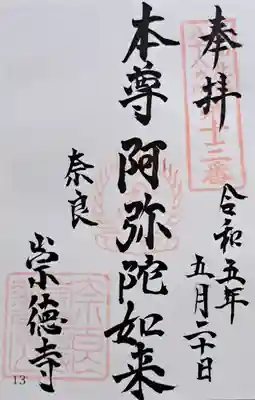 奉拝
令和五年
五月二十日
本尊
阿弥陀如来
奈良
崇徳寺
13